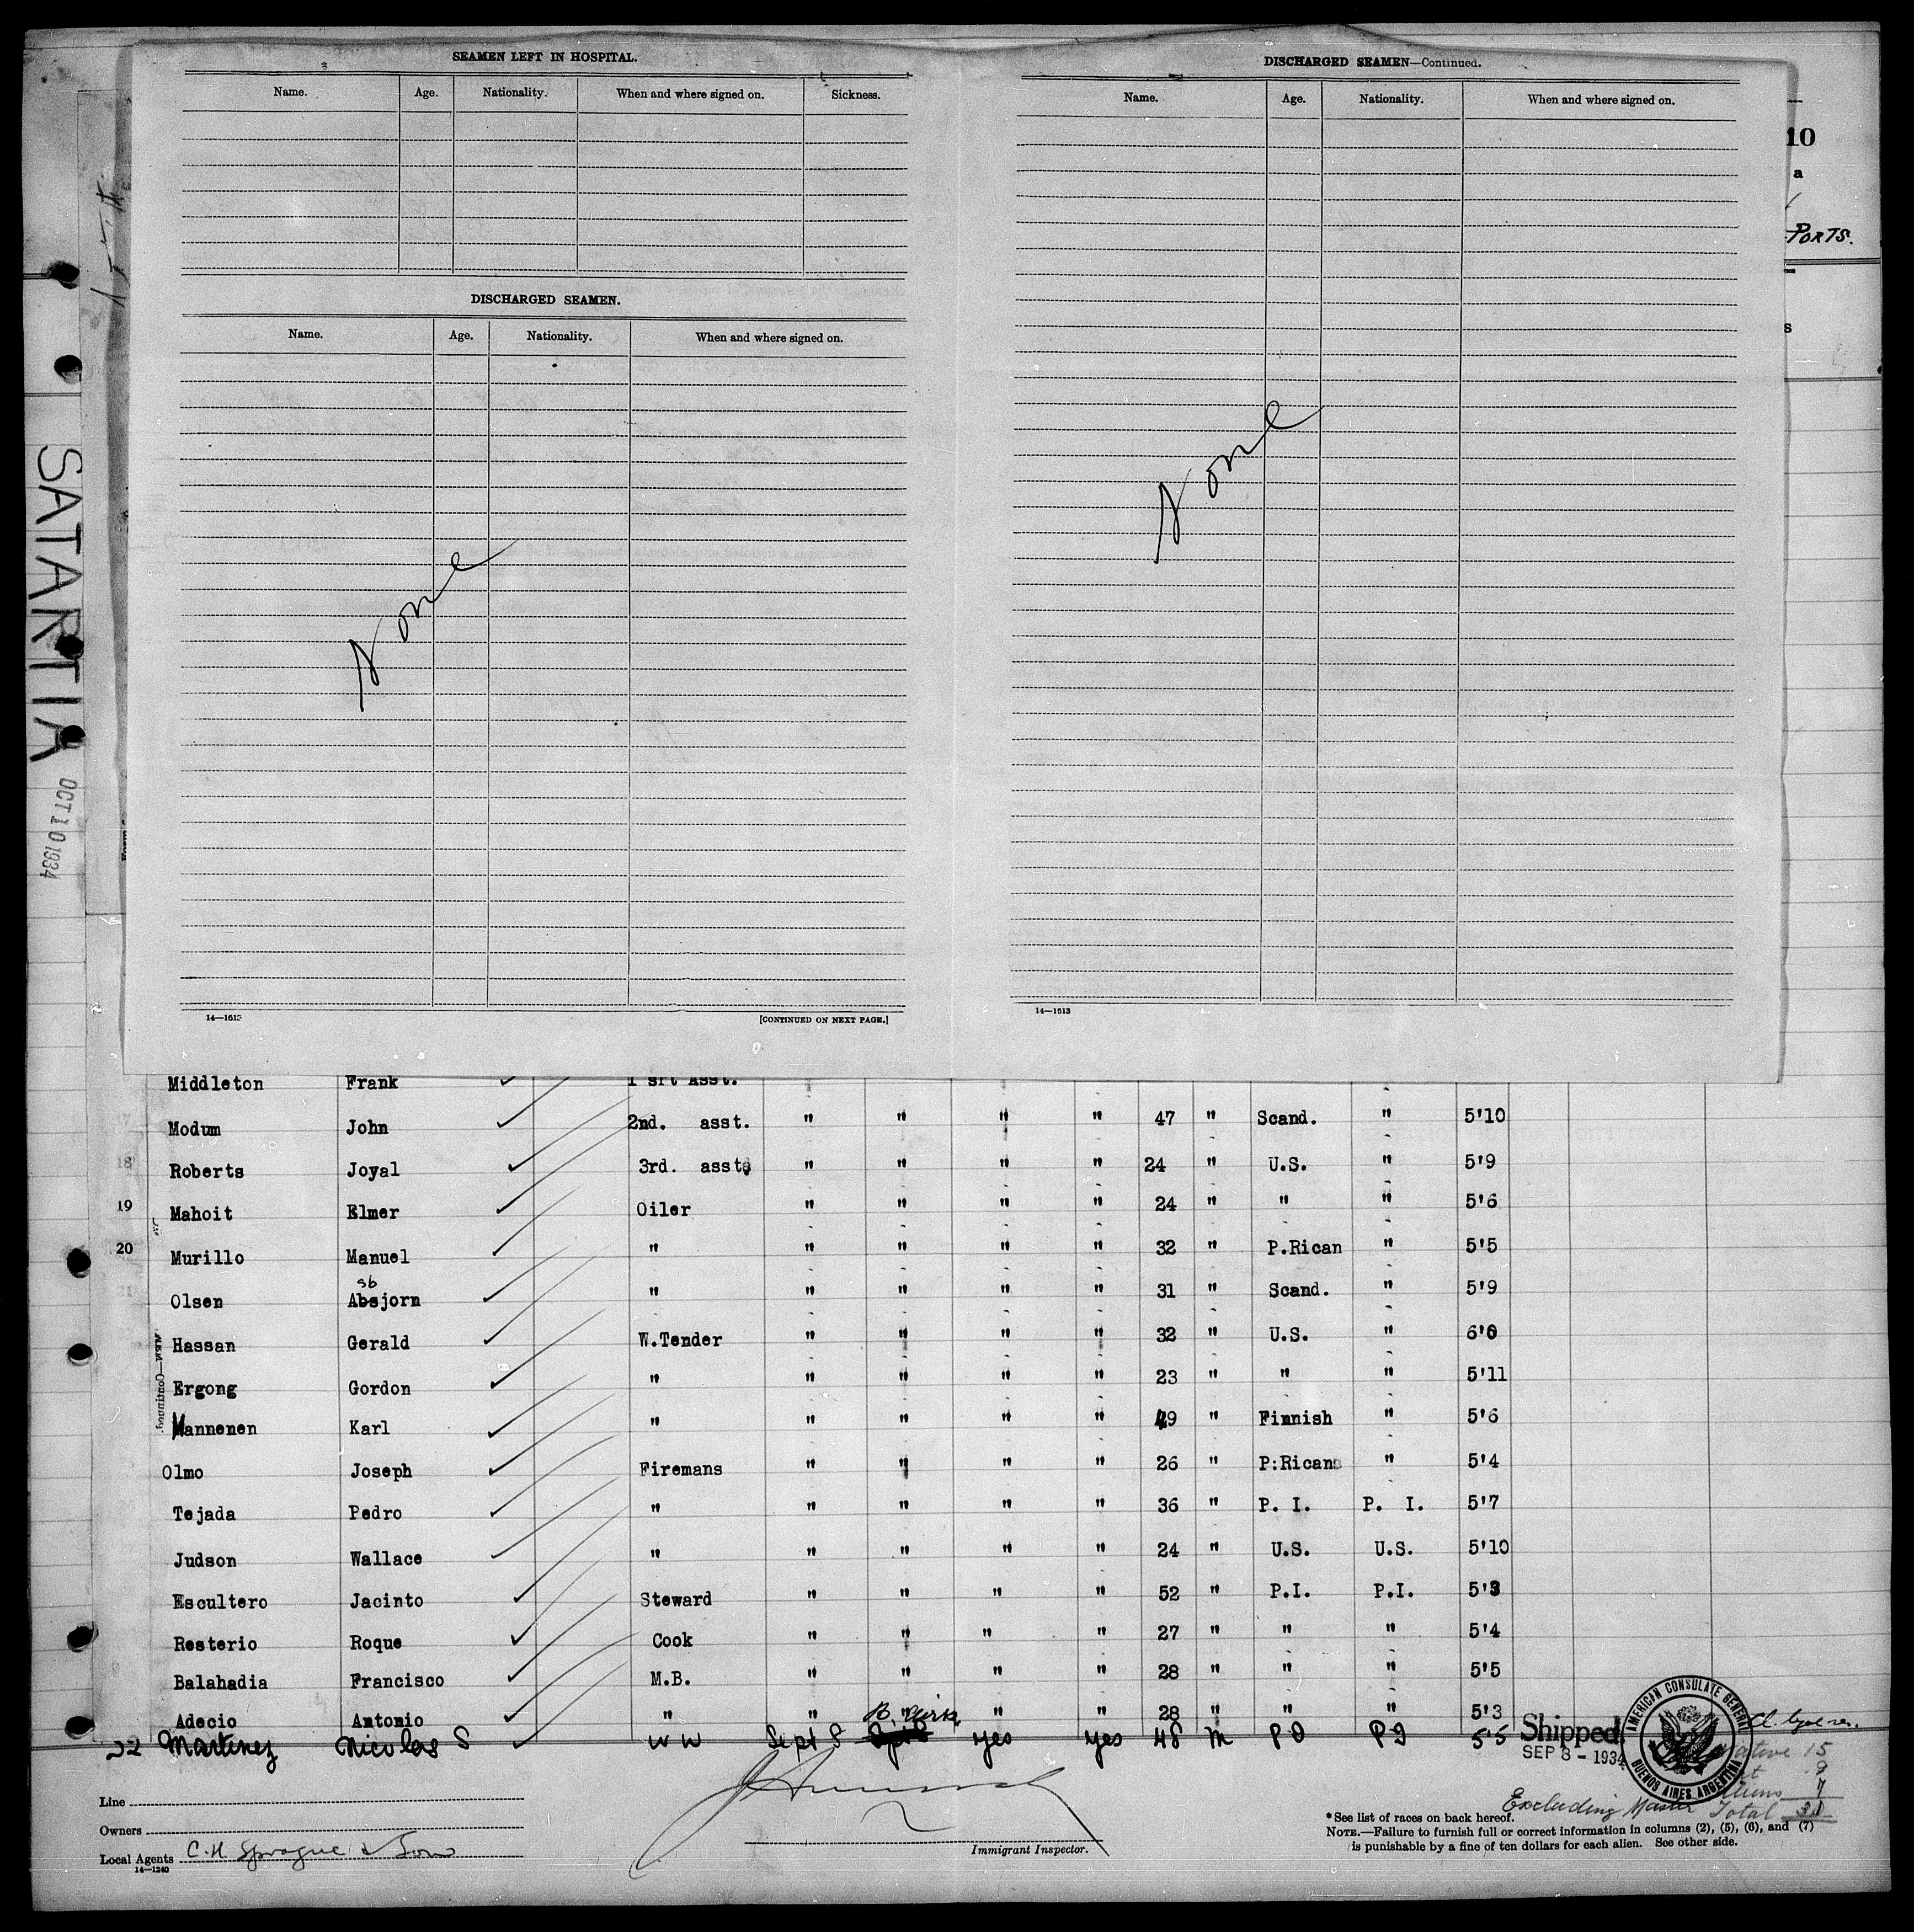 SEAMEN LEFT IN HOSPITAL.
Name. Age. Nationality. When and where signed on. Sickness.
DISCHARGED SEAMEN.
Name. Age. Nationality. When and where signed on.
None
14—1613
[CONTINUED ON NEXT PAGE.]
DISCHARGED SEAMEN—Continued.
Name. Age. Nationality. When and where signed on.
None
14—1613
10
a
PORTS.
s
SATARTIA
OCT 10 1934
Middleton Frank 1 srt Asst.
Modum John 2nd. asst. " " " " 47 " Scand. " 5'10
18 Roberts Joyal 3rd. asst " " " " 24 " U.S. " 5'9
19 Mahoit Elmer Oiler " " " " 24 " " " 5'6
20 Murillo Manuel " " " " " 32 " P.Rican " 5'5
sb
Olsen Absjorn " " " " " 31 " Scand. " 5'9
Hassan Gerald W.Tender " " " " 32 " U.S. " 6'0
Ergong Gordon " " " " " 23 " " " 5'11
Mannenen Karl " " " " " 49 " Finnish " 5'6
Olmo Joseph Firemans " " " " 26 " P:Rican " 5'4
Tejada Pedro " " " " " 36 " P. I. P. I. 5'7
Judson Wallace " " " " " 24 " U.S. U.S. 5'10
Escultero Jacinto Steward " " " " 52 " P.I. P.I. 5'3
Resterio Roque Cook " " " " 27 " " " 5'4
Balahadia Francisco M.B. " " " " 28 " " " 5'5
Adecio Antonio " " " " 28 " " " 5'3
Martinez Nicolas S W W Sept 8 B. Aires yes yes 48 M P I P I 5'5
Shipped
SEP 8 - 1934
AMERICAN CONSULATE GENERAL
BUENOS AIRES ARGENTINA
15
7
Excluding Master Total 31
Line
Owners
Local Agents C.H. Sprague & Son
14—1240
Immigrant Inspector.
*See list of races on back hereof.
NOTE.—Failure to furnish full or correct information in columns (2), (5), (6), and (7)
is punishable by a fine of ten dollars for each alien. See other side.